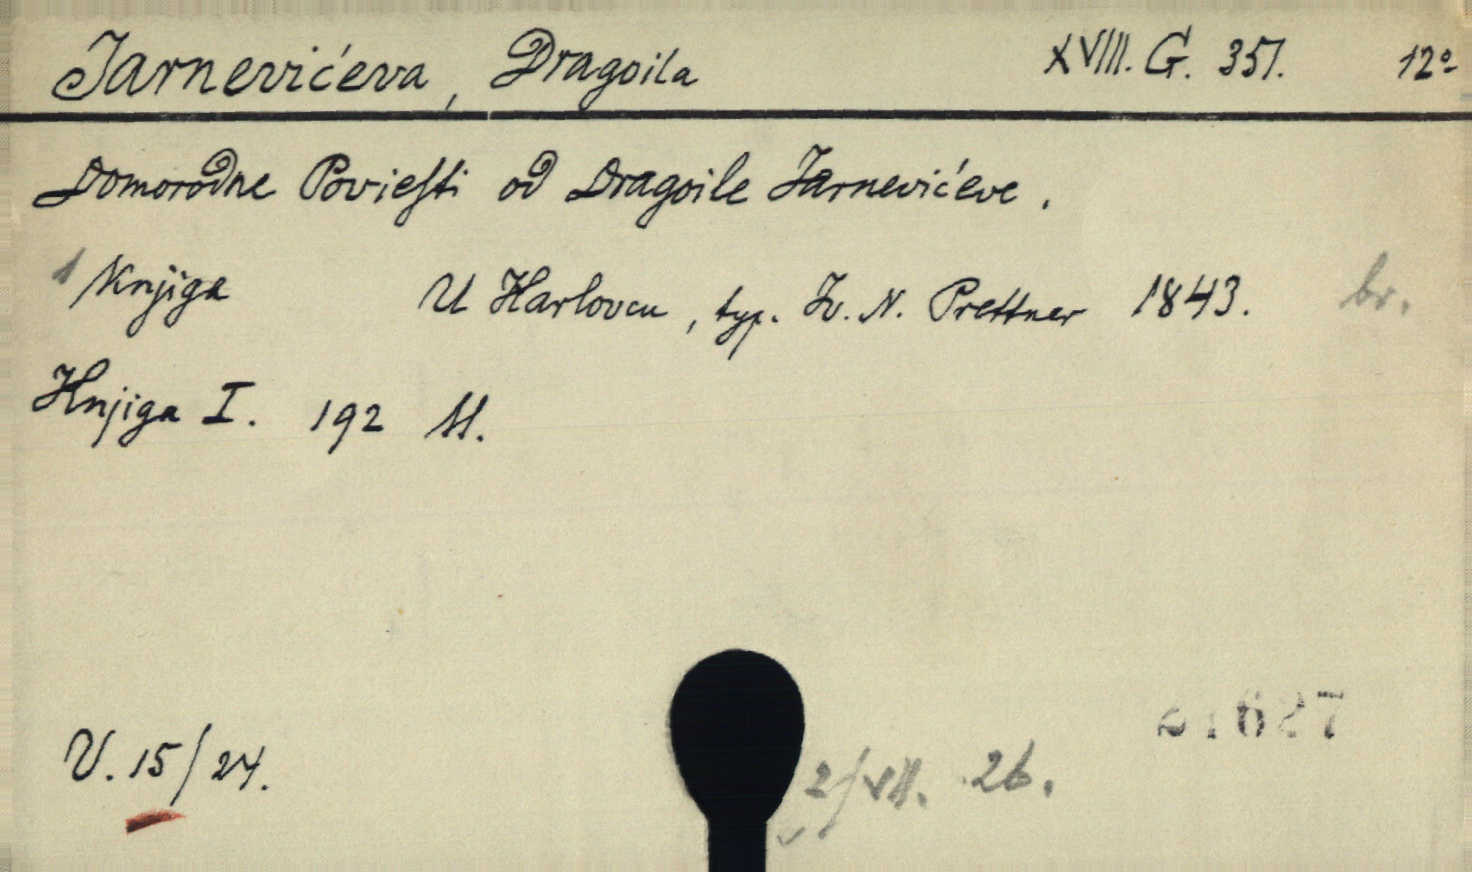 Jarnevićeva, Dragoila XVIII. G. 351. 12º
Domorodne Povieſti od Dragoile Jarnevićeve.
1 Knjiga U Karlovcu, typ. Iv. N. Prettner 1843. br.
Knjiga I. 192 st.
U. 15/24.
2/VII. 26.